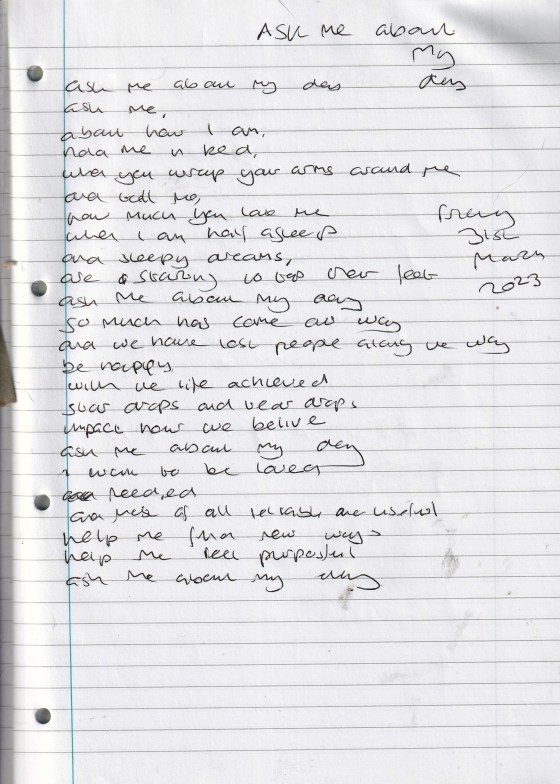 Ask me about
my
day
ask me about my day
ask me,
about how I am,
hold me in bed,
when you wrap your arms around me
and tell me,
how much you love me
when I am half asleep
and sleepy dreams,
are starting to tap their feet
ask me about my day
so much has come our way
and we have lost people along the way
be happy
with the life achieved
star drops and tear drops
impact how we belive
ask me about my day
I want to be loved
needed
and most of all reliable and useful
help me find new ways
help me feel purposful
ask me about my day
Friday
31st
March
2023